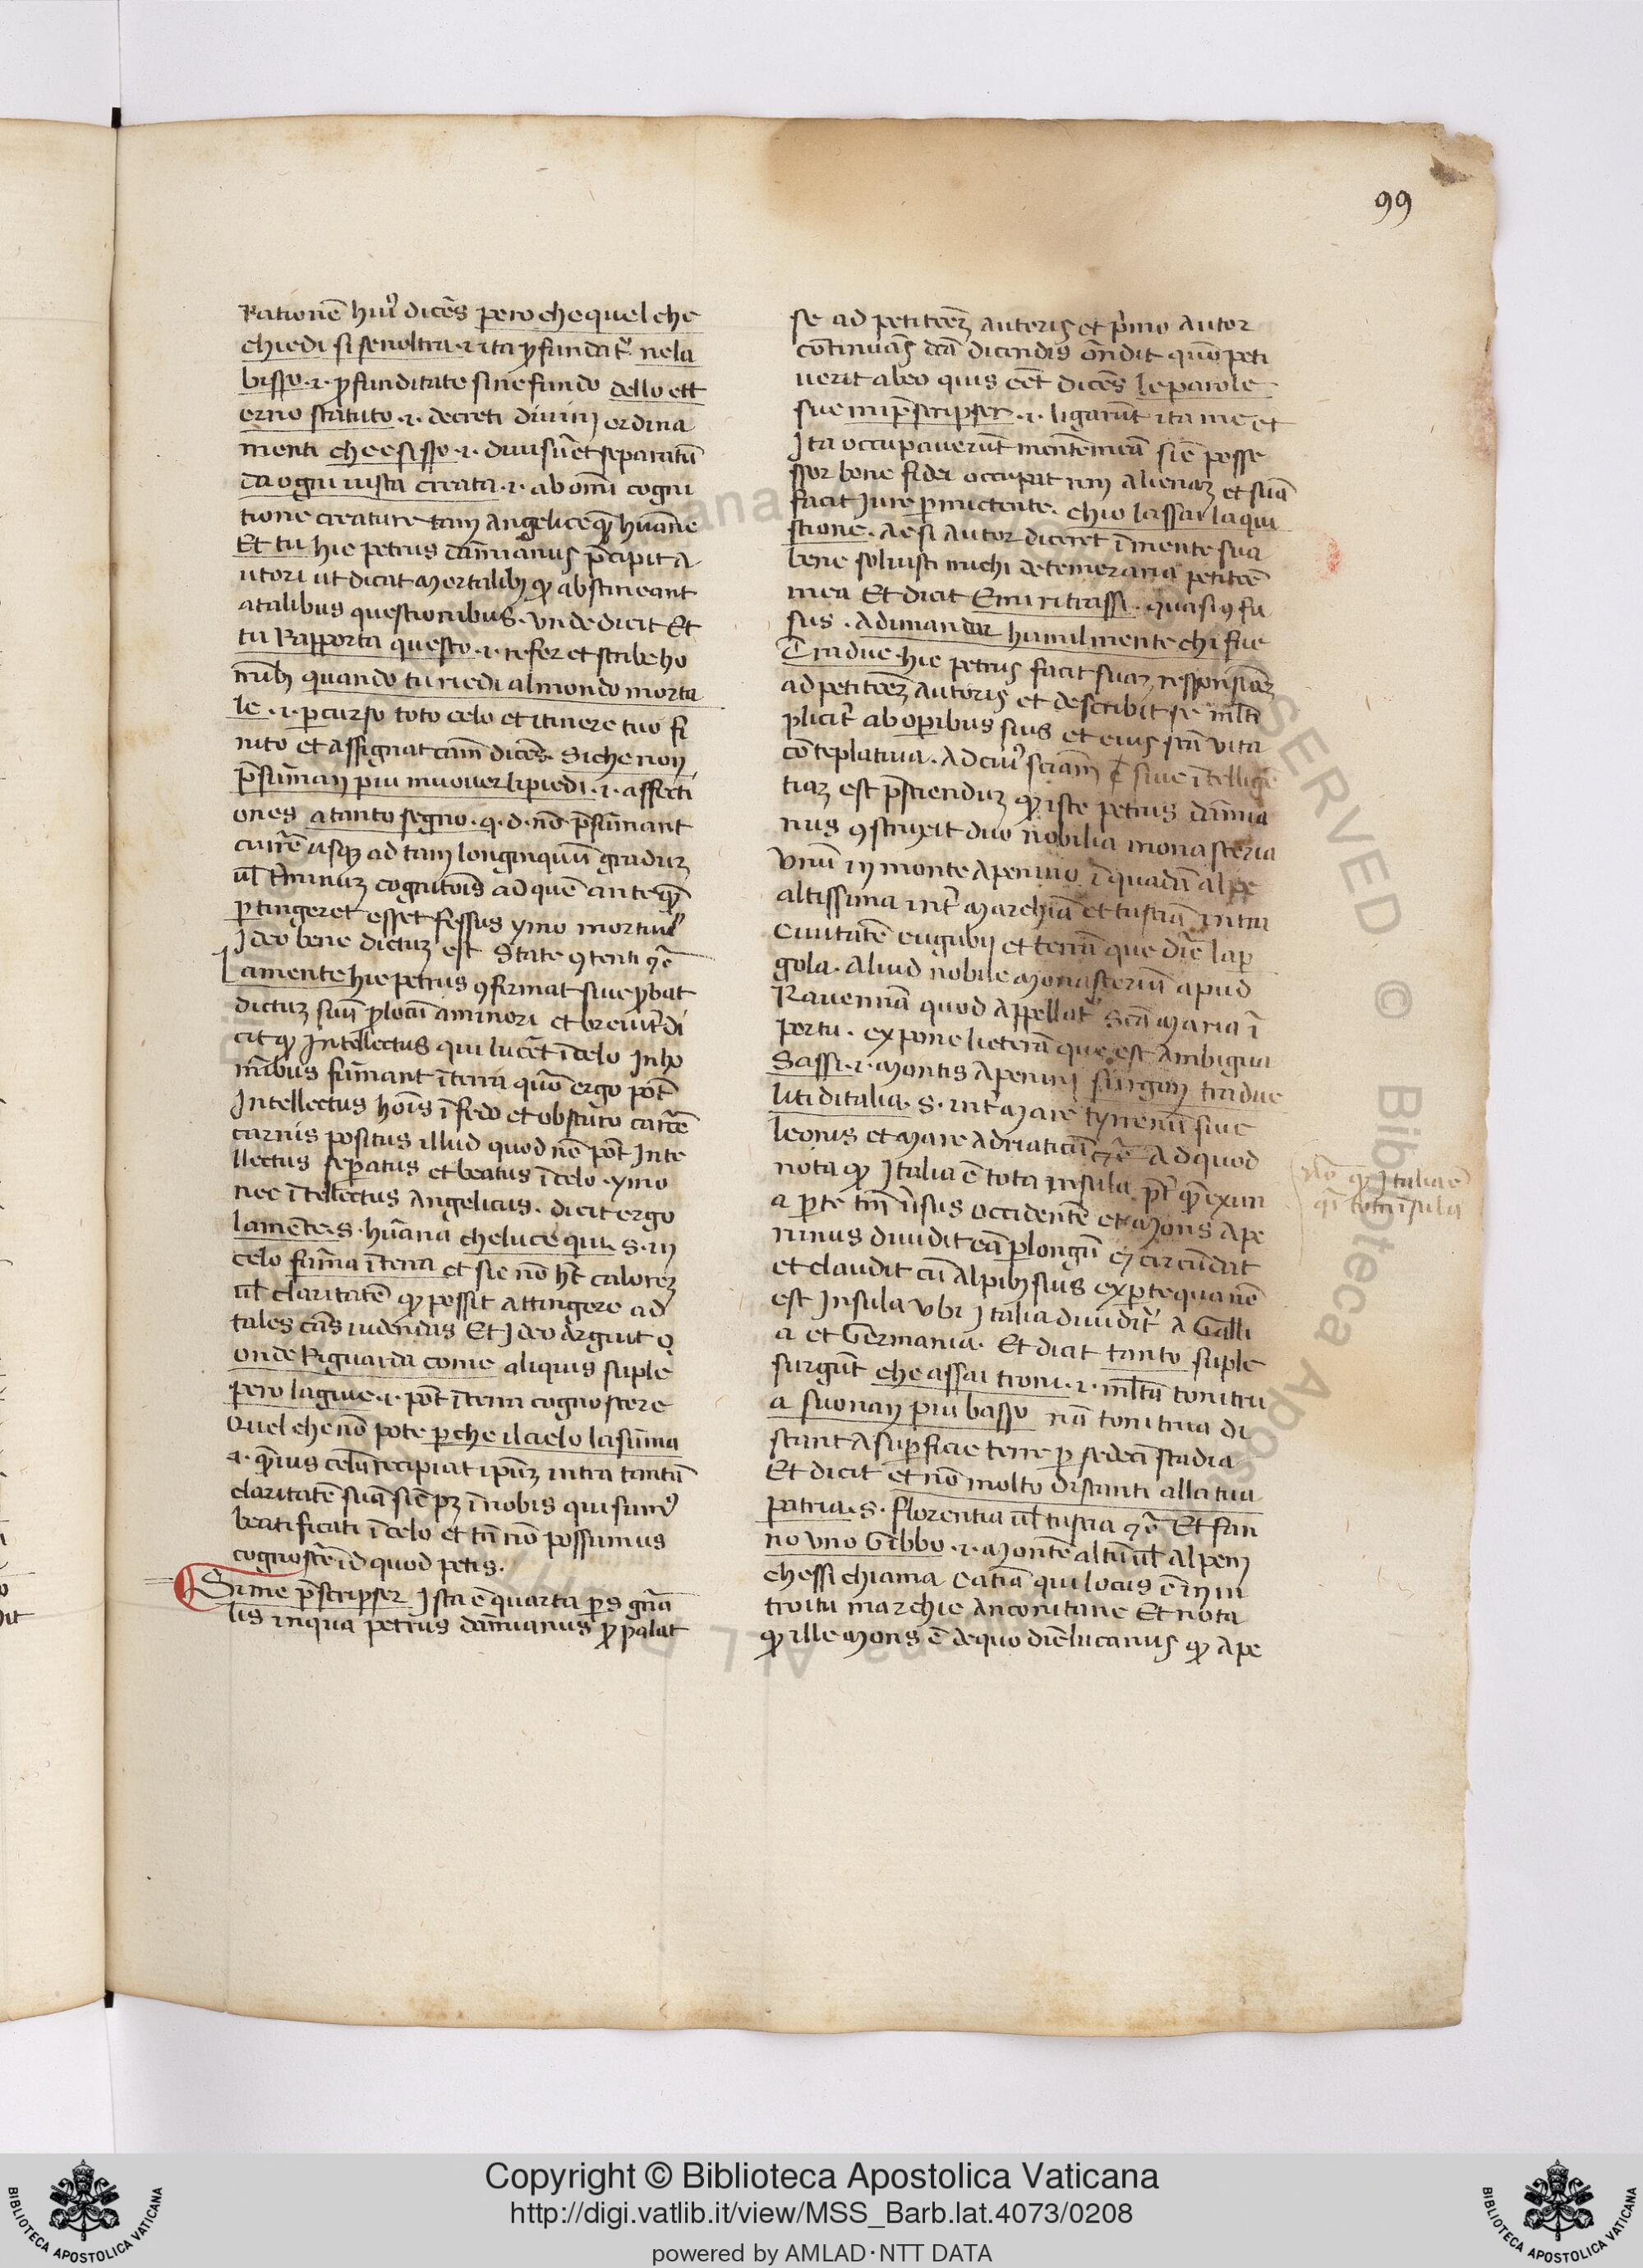 99
Rationē hui᷒ dicēs pero che quel che
chiedi si senoltra .i. ita ꝓfundat᷑ nela
bisso .i. ꝓfunditate sine fundo dello ett
erno statuto .i. decreti diuinj ordina
menti che e sisso .i. diuisū et separatū
da ogni uista creata .i. ab omī cogni
tione creature tam Angelice qȝ humāne
Et tu hic petrus damianus p̄cipit A
utori ut dicat mortalibȝ ꝙ abstineant
a talibus questionibus. Vnde dicit Et
tu Rapporta questo .i. refer et scribe ho
mībȝ quando tu riedi al mondo morta
le .i. ꝑcurso toto celo et itinere tuo fi
nito et assignat cām dicēs. Si che non
p̄suman piu muouer li piedi .i. affecti
ones a tanto segno .q.d. nō p̄sumant
currē usqȝ ad tam longinquū graduȝ
ul̄ t̄minuȝ cognitōis ad quē anteqȝ
ꝑtingeret esset fessus ymo mortuus
Ideo bene dictuȝ est State ꝯtenti ⁊c̄
Lamente hic petrus ꝯfirmat siue ꝓbat
dictuȝ suū ꝑ locū a minori et breuit᷑ di
cit ꝙ Intellectus qui lucēt ī celo In ho
mībus fumant ī terra quō ergo pōt
Intellectus hoīs ī fedo et obscuro carcē
carnis positus illud quod nō pōt Inte
llectus seꝑatus et beatus ī celo. ymo
nec ītellectus Angelicus. dicit ergo
la mēte .s. humāna che luce qui .s. in
celo fuma ī terra et sic nō hēt calorēȝ
ul̄ claritatē ꝙ possit attingere ad
tales cās uidendas Et Ideo Arguit
onde Riguarda come aliquis suple
pero la giue .i. pōt ī terra cognoscere
Quel che nō pote perche il cielo lasūma
.i. q̄uis celū recipiat ipūȝ intra tantā
claritatē suā sic̄ pȝ ī nobis qui sum᷒
beatificati ī celo et tn̄ nō possumus
cognoscē id quod petis.
Si me p̄scripser Ista ē quarta ps gn̄a
lis in qua petrus damianus ꝓpalat
se ad petitōeȝ Autoris et p̄imo Autor
continuās dcā dicendis ōndit quō peti
uerit ab eo quis eēt dicēs le parole
sue mi p̄scripser .i. ligarūt ita me et
Ita occupauerūt mentē meā sic̄ posse
ssor bone fidei occupat rem alienaȝ et suā
facit Iure permictente. chio lassai la qui
stione. Ac si Autor diceret ī mente sua
bene soluisti michi de temeraria petitōe
mea Et dicit Emi ritrassi. quasi ꝯfu
sus. A dimandar humilmente chi fue
Tra due. hic petrus facit suaȝ responsiōeȝ
ad petitōeȝ Autoris et describit se ml̄ti
plicit᷑ ab operibus suis et eius scā vita
contēplatiua. Ad cui᷒ sciam siue ītellige
tiaȝ est p̄sciendūȝ ꝙ iste petrus damia
nus ꝯstruxit duo nobilia monasteria
Vnū in monte Apenino ī quadā alpe
altissima int᷑ marchiā et tusciā intra
Ciuitatē eugubij et terrā que dic̄ laꝑ
gola. Aliud nobile monasteriū apud
Rauennā quod Appellat᷑ Scā Maria ī
portu. expone licterā que est Ambigua
Sassi .i. Montis Apenini surgon tra due
liti ditalia .s. int᷑ Mare tyrrenū siue
leonis et mare Adriaticū ⁊c̄ Ad quod
nota ꝙ Italia ē tota Insula p̄t q̄ ex un
a ꝑte tm̄ uersus occidentē et mons Ape
ninus diuidit eā ꝑ longū et circūdat
et claudit cū Alpibȝ suis ex ꝑte qua nō
est Insula ubi Italia diuidit᷑ A Galli
a et Germania. Et dicit tanto suple
surgūt che assai troni .i. ml̄ta tonitru
a suonan piu basso nā tonitrua di
stant A suꝑficie terre ꝑ sedeci stadia
Et dicit et nō molto distanti alla tua
patria .s. florentia ul̄ tuscia ⁊c̄ Et fan
no uno Gibbo .i. Montē altū ul̄ alpem
che ssi chiama Catria qui locus ē in in
troitu marchie Anconitane Et nota
ꝙ ille Mons ē de quo dic̄ lucanus ꝙ Ape
nō ꝙ Italia ē
q̄i tota īsula
Copyright © Biblioteca Apostolica Vaticana
http://digi.vatlib.it/view/MSS_Barb.lat.4073/0208
powered by AMLAD·NTT DATA
BIBLIOTECA APOSTOLICA VATICANA
BIBLIOTECA APOSTOLICA VATICANA